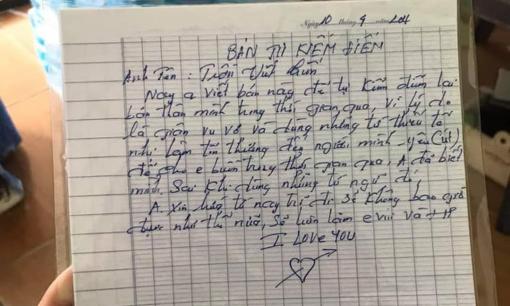 Ngày 10 tháng 9 năm 201
BẢN TỰ KIỂM ĐIỂM
Anh Tên : Trần Viết
Nay a viết bản này để tự kiểm điểm lại
bản thân mình trong thời gian qua, vì lý do
là giận vu vơ và dùng những từ thiếu tế
nhị làm tổn thương đến người mình yêu (
để cho e buồn trong thời gian qua, A đã biết
mình Sai khi dùng những từ ngữ đó
A. Xin hứa từ nay trở đi sẽ không bao giờ
được như thế nữa, sẽ luôn làm e vui và
I Love YOU